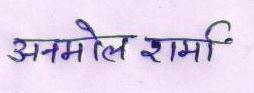 अनमोल शर्मा